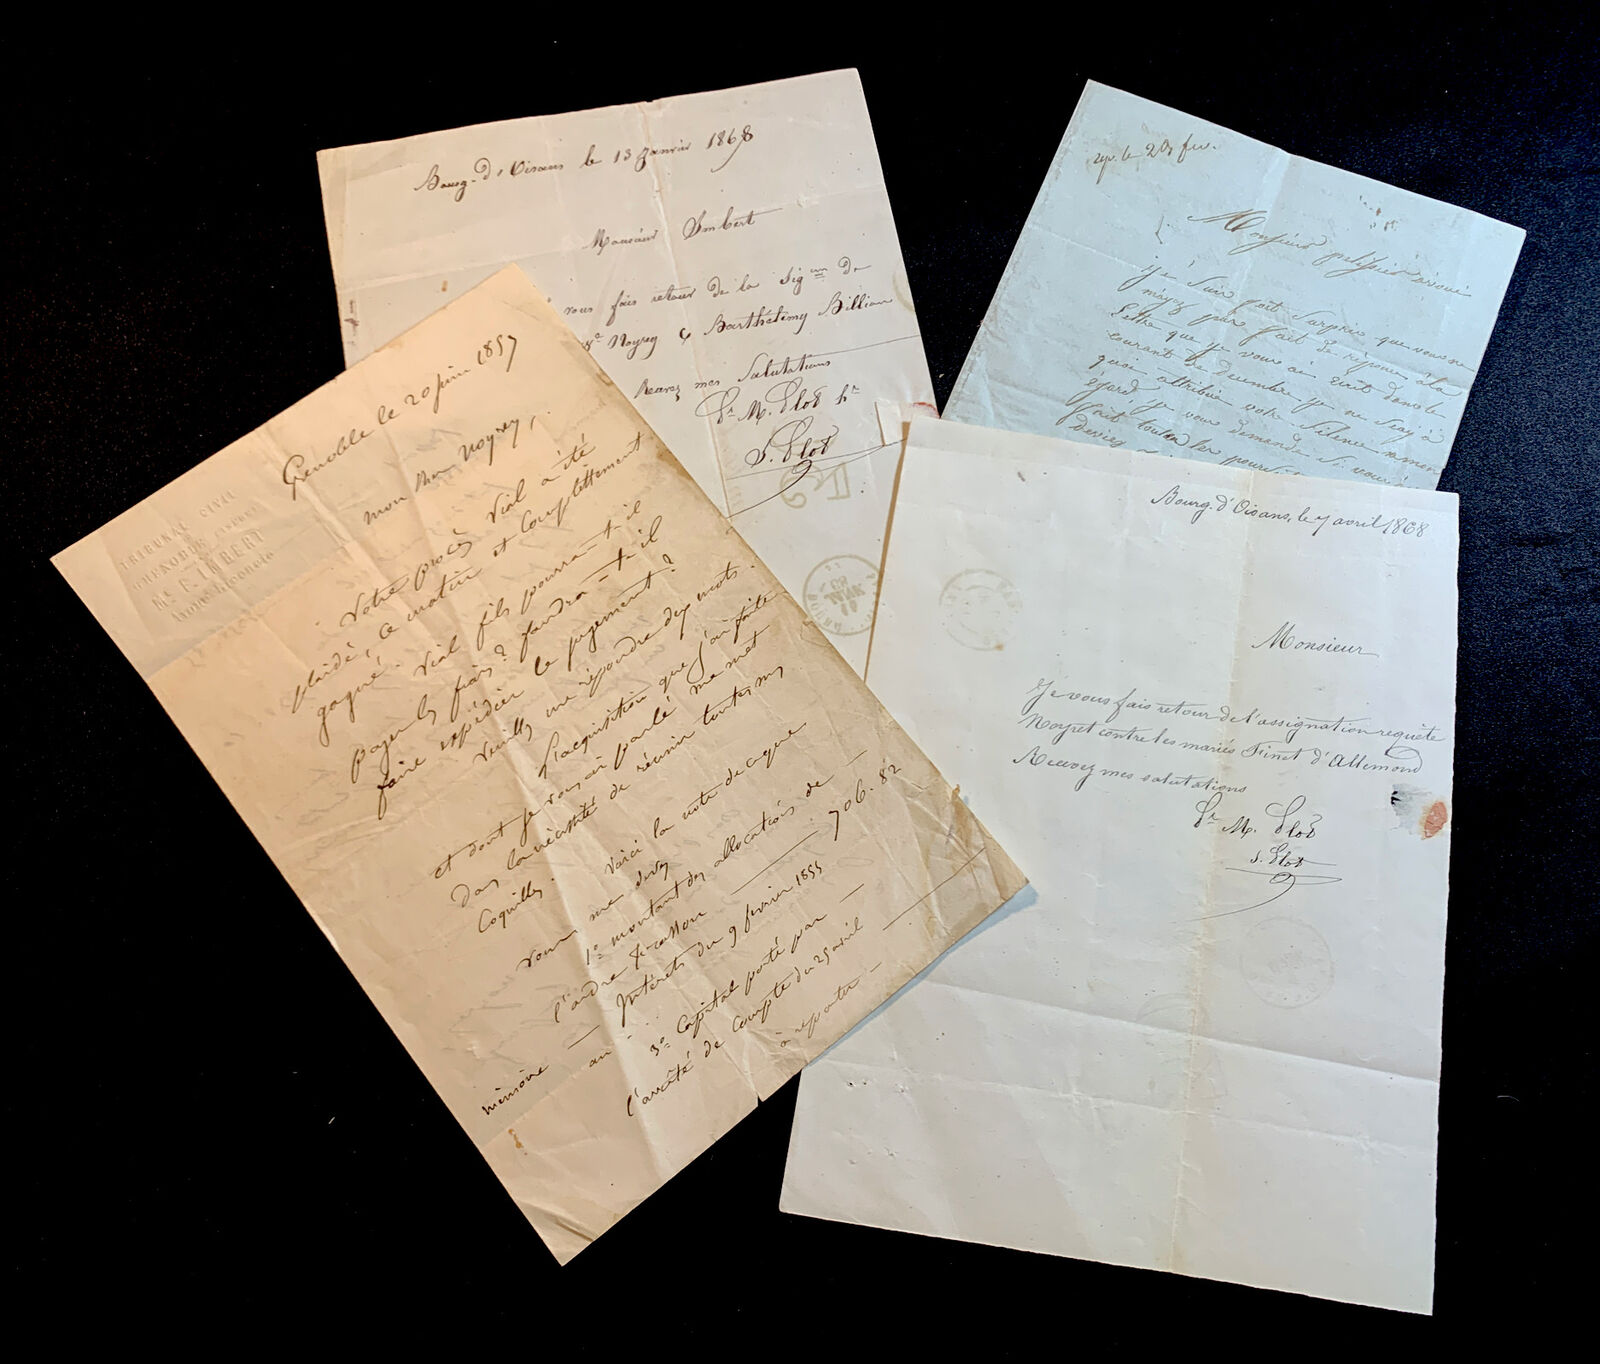 Bourg-d'Oisans le 13 Janvier 1868
Monsieur Imbert
vous fais retour de la Sig^on de
Noyrey & Barthélemy Billian
Recevez mes Salutations
P^r M. Glod h^r
S. Glod
rep. le 20 fev.
Monsieur
je suis fort surpris que vous ne
m'ayez pas fait de réponse à la
lettre que je vous ai écrit dans le
courant de Décembre je ne sai à
quoi attribuer votre silence à mon
égard je vous demande si vous
fait toutes les
deviez
Grenoble le 20 juin 1857
mon cher Noyrey,
TRIBUNAL CIVIL
DE
GRENOBLE
M^e F. IMBERT
Avoué Licencié
Votre procès Vial a été
plaidé, ce matin et complettement
gagné. Vial fils pourra-t-il
payer les frais? faudra-t-il
faire expédier le jugement?
Veuillez me répondre deux mots.
L'acquisition que j'ai faite
et dont je vous ai parlé me met
dans la nécessité de réunir toutes mes
Coquilles. Voici la note de ce que
vous me devez
1° montant des allocations de
l'ordre 706.82
Intérêts du 9 février 1855
mémoire
3° Capital porté par
l'arrêté de compte du 25 avril
à reporter
Bourg-d'Oisans, le 7 avril 1868
Monsieur
Je vous fais retour de l'assignation requête
Noyret contre les mariés Finet d'Allemond
Recevez mes salutations
P^r M. Glod
S. Glod